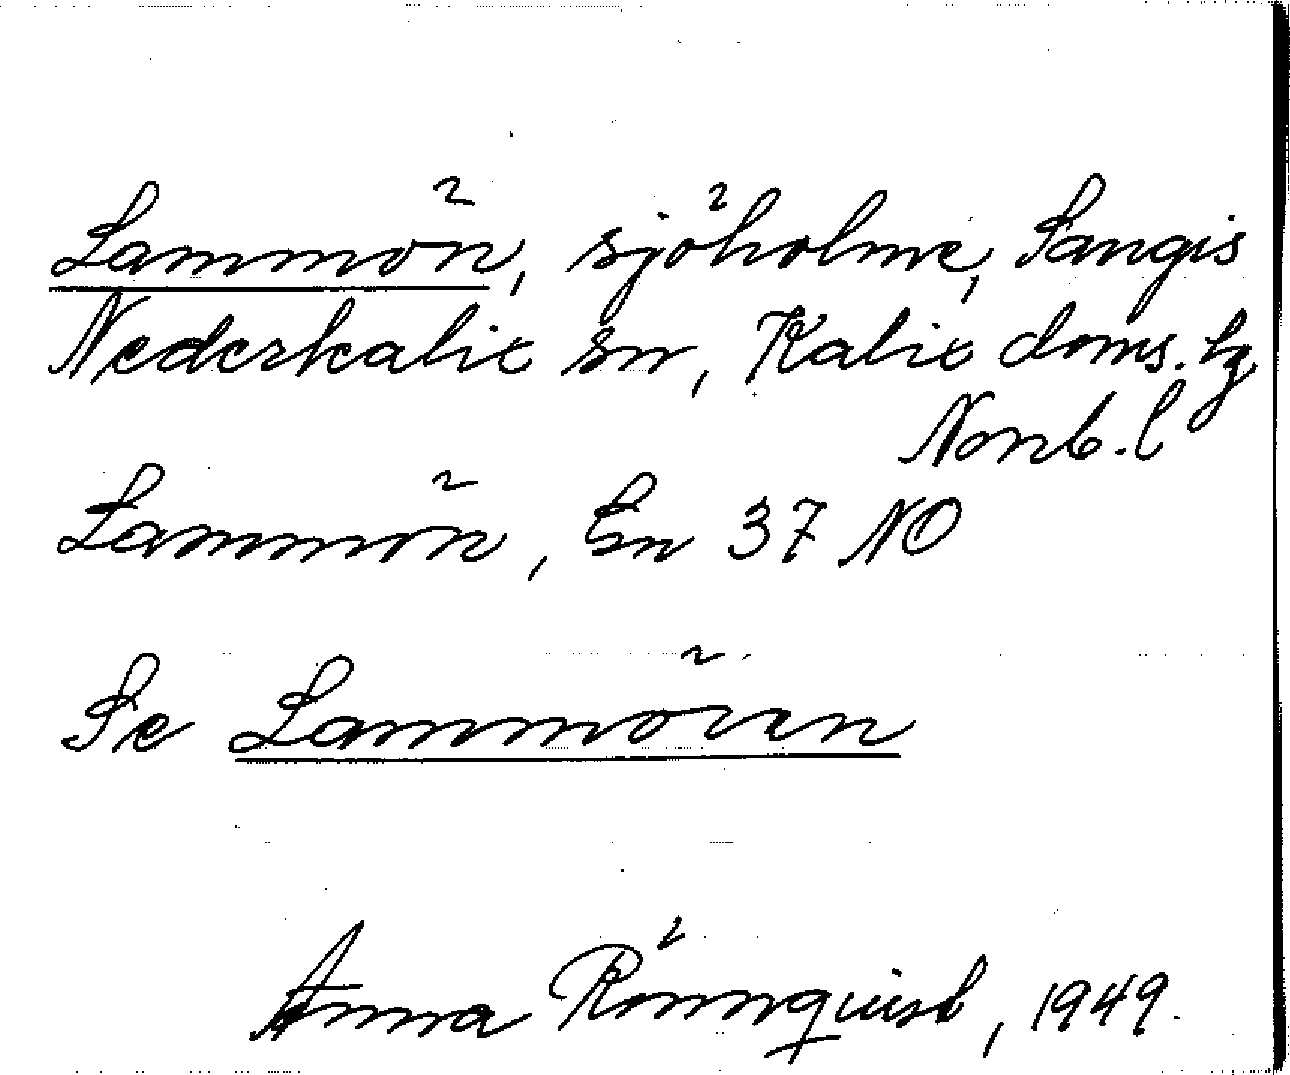 Lammön, sjöholme, Sangis
Nederkalix sn, Kalix doms. lg
Norrb. l
Lammön, En 37 NO
Se Lammören
Anna Rönnquist, 1949.